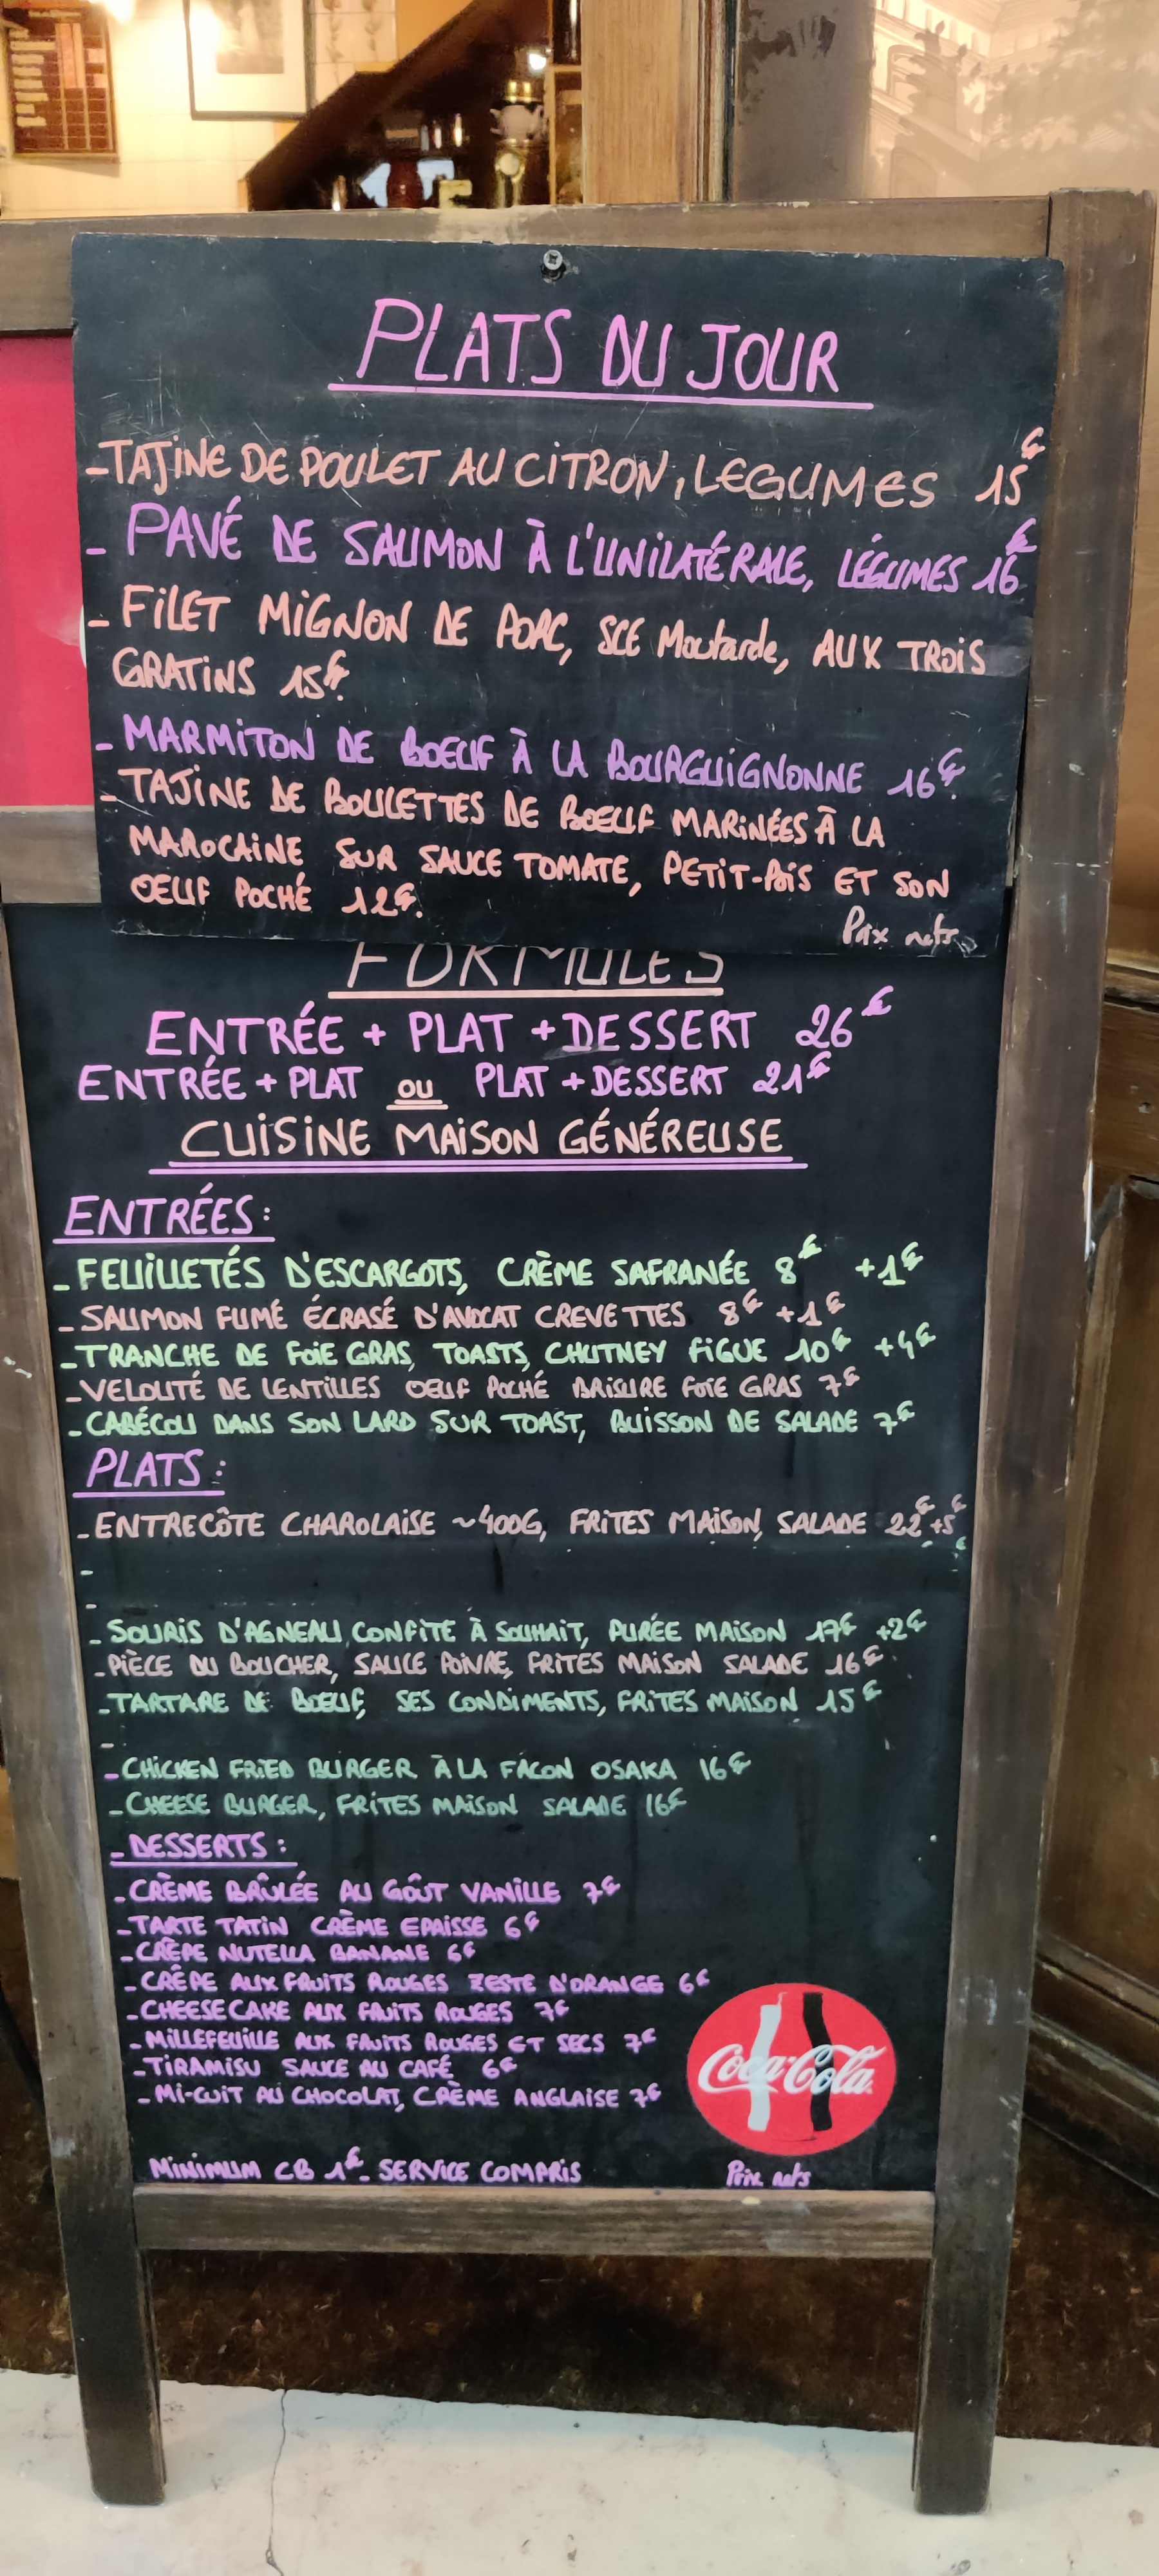 PLATS DU JOUR
-TAJINE DE POULET AU CITRON, LEGUMES 15€
- PAVÉ DE SAUMON À L'UNILATÉRALE, LÉGUMES 16€
- FILET MIGNON DE PORC, SCE Moutarde, AUX TROIS
GRATINS 15€.
- MARMITON DE BOEUF À LA BOURGUIGNONNE 16€.
- TAJINE DE BOULETTES DE BOEUF MARINÉES À LA
MAROCAINE SUR SAUCE TOMATE, PETIT-POIS ET SON
OEUF POCHÉ 12€.
Prix nets
FORMULES
ENTRÉE + PLAT + DESSERT 26€
ENTRÉE + PLAT OU PLAT + DESSERT 21€
CUISINE MAISON GÉNÉREUSE
ENTRÉES:
- FEUILLETÉS D'ESCARGOTS, CRÈME SAFRANÉE 8€ +1€
- SAUMON FUMÉ ÉCRASÉ D'AVOCAT CREVETTES 8€ +1€
- TRANCHE DE FOIE GRAS, TOASTS, CHUTNEY FIGUE 10€ +4€
- VELOUTÉ DE LENTILLES OEUF POCHÉ BRISURE FOIE GRAS 7€
- CABÉCOU DANS SON LARD SUR TOAST, BUISSON DE SALADE 7€
PLATS:
- ENTRECÔTE CHAROLAISE ~400G, FRITES MAISON, SALADE 22€ +5€
-
-
- SOURIS D'AGNEAU, CONFITE À SOUHAIT, PURÉE MAISON 17€ +2€
- PIÈCE DU BOUCHER, SAUCE POIVRE, FRITES MAISON SALADE 16€
- TARTARE DE BOEUF, SES CONDIMENTS, FRITES MAISON 15€
-
- CHICKEN FRIED BURGER À LA FAÇON OSAKA 16€
- CHEESE BURGER, FRITES MAISON SALADE 16€
- DESSERTS:
- CRÈME BRÛLÉE AU GOÛT VANILLE 7€
- TARTE TATIN CRÈME EPAISSE 6€
- CRÊPE NUTELLA BANANE 6€
- CRÊPE AUX FRUITS ROUGES ZESTE D'ORANGE 6€
- CHEESECAKE AUX FRUITS ROUGES 7€
- MILLEFEUILLE AUX FRUITS ROUGES ET SECS 7€
- TIRAMISU SAUCE AU CAFÉ 6€
- MI-CUIT AU CHOCOLAT, CRÈME ANGLAISE 7€
Coca-Cola
MINIMUM CB 1€- SERVICE COMPRIS
Prix nets